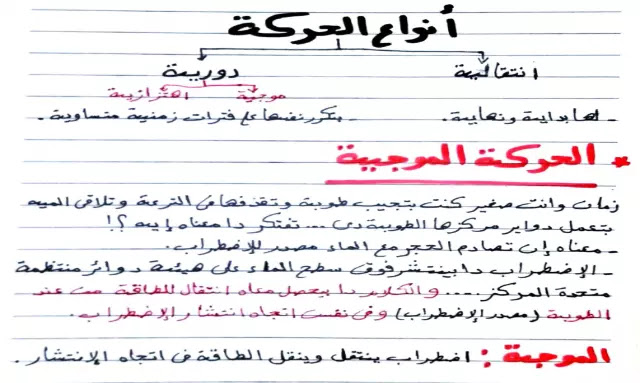 أنواع الحركة
انتقالية دورية
موجية اهتزازية
- لها بداية ونهاية. - بتكرر نفسها على فترات زمنية متساوية.
* الحركة الموجية
زمان وانت صغير كنت بتجيب طوبة وتقذفها فى الترعة وتلاقى الميه
بتعمل دواير مركزها الطوبة دى ... تفتكر دا معناه إيه ؟!
- معناه إن تصادم الحجر مع الماء مصدر للإضطراب.
- الإضطراب دا بينتشر فوق سطح الماء على هيئة دوائر منتظمة
متحدة المركز .... والكلام دا بيحصل معاه انتقال للطاقة من عند
الطوبة (مصدر الإضطراب) وفى نفس اتجاه انتشار الإضطراب.
الموجة : اضطراب ينتقل وينقل الطاقة فى اتجاه الإنتشار.